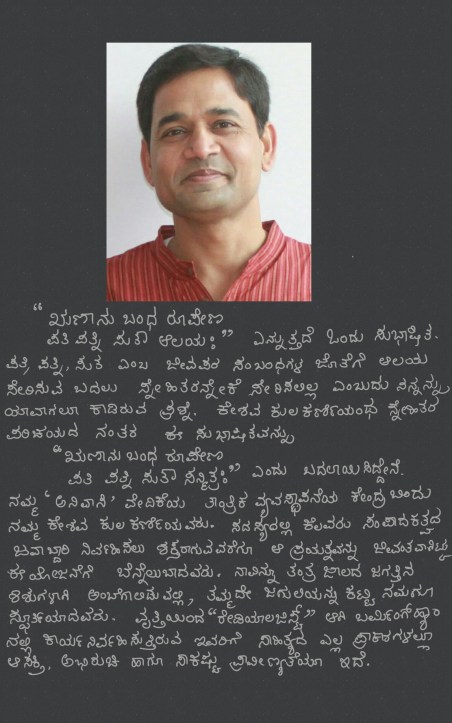 “ಋಣಾನು ಬಂಧ ರೂಪೇಣ
ಪತಿ ಪತ್ನಿ ಸುತೌ ಆಲಯಃ” ಎನ್ನುತ್ತದೆ ಒಂದು ಸುಭಾಷಿತ.
ಪತಿ, ಪತ್ನಿ, ಸುತ ಎಂಬ ಜೀವಪರ ಸಂಬಂಧಗಳ ಜೊತೆಗೆ ಆಲಯ
ಸೇರಿಸುವ ಬದಲು ಸ್ನೇಹಿತರನ್ನೇಕೆ ಸೇರಿಸಲಿಲ್ಲ ಎಂಬುದು ನನ್ನನ್ನು
ಯಾವಾಗಲೂ ಕಾಡಿರುವ ಪ್ರಶ್ನೆ. ಕೇಶವ ಕುಲಕರ್ಣಿಯಂಥ ಸ್ನೇಹಿತರ
ಪರಿಚಯದ ನಂತರ ಈ ಸುಭಾಷಿತವನ್ನು
“ಋಣಾನು ಬಂಧ ರೂಪೇಣ
ಪತಿ ಪತ್ನಿ ಸುತೌ ಸನ್ಮಿತ್ರಃ” ಎಂದು ಬದಲಾಯಿಸಿದ್ದೇನೆ.
ನಮ್ಮ ‘ಅನಿವಾಸಿ’ ವೇದಿಕೆಯ ತಾಂತ್ರಿಕ ವ್ಯವಸ್ಥಾಪನೆಯ ಕೇಂದ್ರ ಬಿಂದು
ನಮ್ಮ ಕೇಶವ ಕುಲಕರ್ಣಿಯವರು. ಸದಸ್ಯರಲ್ಲಿ ಕೆಲವರು ಸಂಪಾದಕತ್ವದ
ಜವಾಬ್ದಾರಿ ನಿರ್ವಹಿಸಲು ಶಕ್ತರಾಗುವವರೆಗೂ ಆ ಪ್ರಯತ್ನವನ್ನು ಜೀವಂತವಾಗಿಟ್ಟು
ಈ ಯೋಜನೆಗೆ ಬೆನ್ನೆಲುಬಾದವರು. ನಾವಿನ್ನು ತಂತ್ರ ಜಾಲದ ಜಗತ್ತಿನ
ಶಿಶುಗಳಾಗಿ ಅಂಬೆಗಾಲಿಡುವಲ್ಲಿ, ತಮ್ಮದೇ ಜಗುಲಿಯನ್ನು ಕಟ್ಟಿ ನಮಗೂ
ಸ್ಫೂರ್ತಿಯಾದವರು. ವೃತ್ತಿಯಿಂದ “ರೇಡಿಯಾಲಜಿಸ್ಟ್” ಆಗಿ ಬರ್ಮಿಂಗ್‌ಹ್ಯಾಂ
ನಲ್ಲಿ ಕಾರ್ಯನಿರ್ವಹಿಸುತ್ತಿರುವ ಇವರಿಗೆ ಸಾಹಿತ್ಯದ ಎಲ್ಲ ಪ್ರಾಕಾರಗಳಲ್ಲೂ
ಆಸಕ್ತಿ, ಅಭಿರುಚಿ ಹಾಗೂ ಸಾಕಷ್ಟು ಪ್ರಾವೀಣ್ಯತೆಯೂ ಇದೆ.